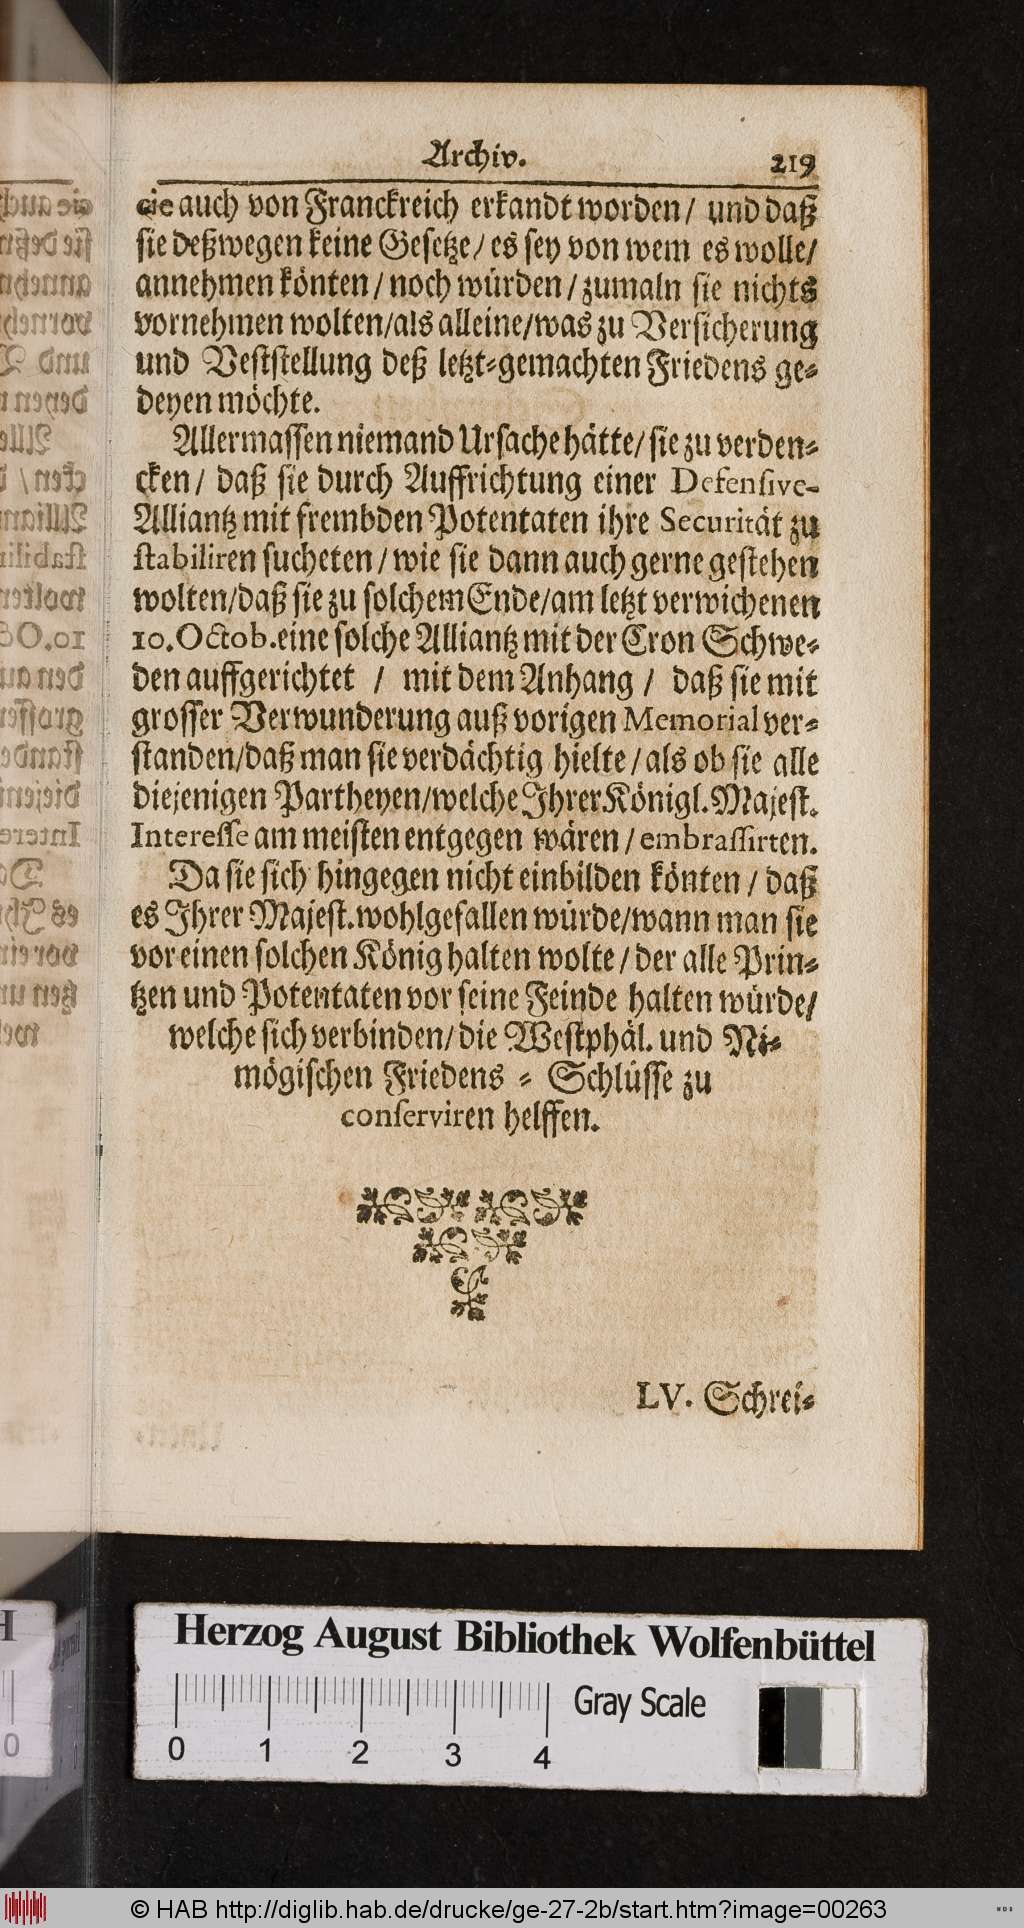 Archiv. 219
die auch von Franckreich erkandt worden / und daß
sie deßwegen keine Gesetze / es sey von wem es wolle /
annehmen könten / noch würden / zumaln sie nichts
vornehmen wolten / als alleine / was zu Versicherung
und Veststellung deß letzt-gemachten Friedens ge-
deyen möchte.
Allermassen niemand Ursache hätte / sie zu verden-
cken / daß sie durch Auffrichtung einer Defensive-
Alliantz mit frembden Potentaten ihre Securität zu
stabiliren sucheten / wie sie dann auch gerne gestehen
wolten / daß sie zu solchem Ende / am letzt verwichenen
10. Octob. eine solche Alliantz mit der Cron Schwe-
den auffgerichtet / mit dem Anhang / daß sie mit
grosser Verwunderung auß vorigen Memorial ver-
standen / daß man sie verdächtig hielte / als ob sie alle
diejenigen Partheyen / welche Ihrer Königl. Majest.
Interesse am meisten entgegen wären / embrassirten.
Da sie sich hingegen nicht einbilden könten / daß
es Ihrer Majest. wohlgefallen würde / wann man sie
vor einen solchen König halten wolte / der alle Prin-
tzen und Potentaten vor seine Feinde halten würde /
welche sich verbinden / die Westphäl. und Ni-
mögischen Friedens - Schlüsse zu
conserviren helffen.
LV. Schrei-
Herzog August Bibliothek Wolfenbüttel
Gray Scale
0 1 2 3 4
© HAB http://diglib.hab.de/drucke/ge-27-2b/start.htm?image=00263